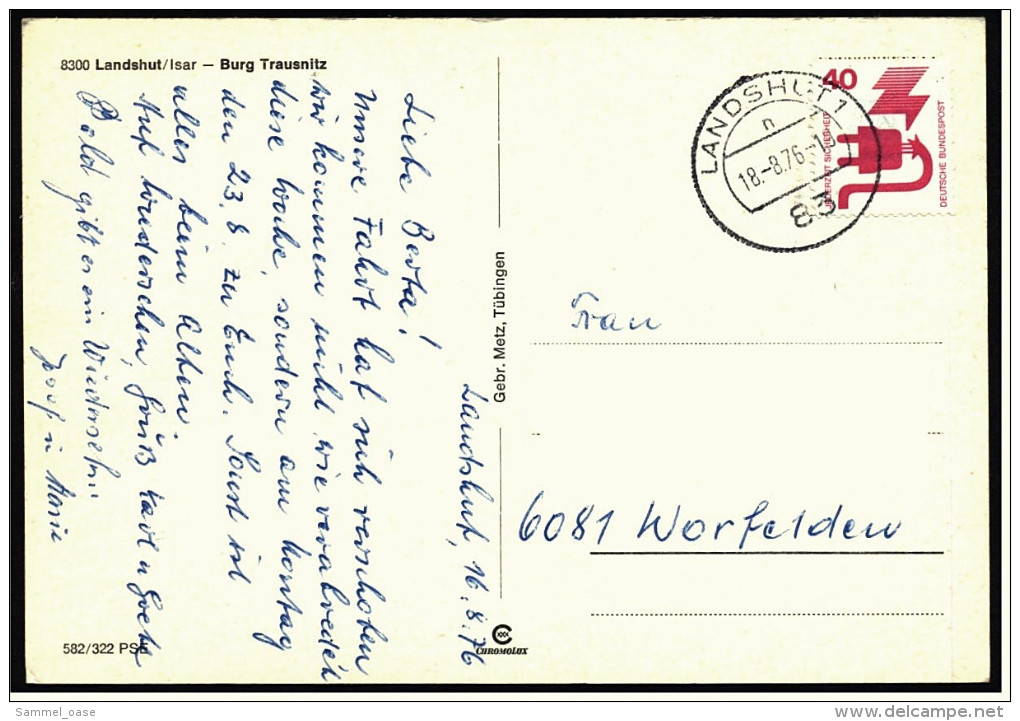 8300 Landshut/Isar — Burg Trausnitz
Landshut, 16.8.76
Liebe Berta!
Unsere Fahrt hat sich verschoben
wir kommen nicht wie verabredet
diese Woche, sondern am Montag
den 23.8. zu Euch. Sonst ist
alles beim Alten.
Auf Wiedersehen, Grüß Karl u Grete
Bald gibt es ein Wiedersehn
Josef u Marie
582/322 PSE
Gebr. Metz, Tübingen
CHROMOLUX
LANDSHUT 1
n
18.-8.76-1
83
40
JEDERZEIT SICHERHEIT
DEUTSCHE BUNDESPOST
Frau
6081 Worfelden
Sammel_oase
delcampe.net